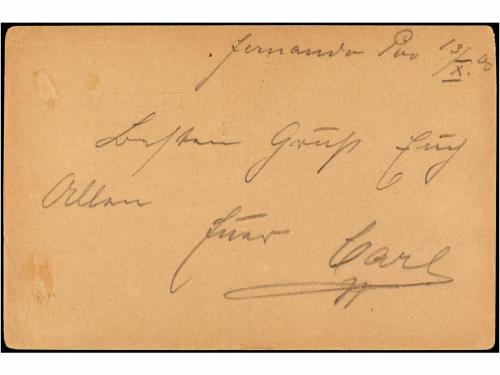 Fernando Poo 13/X. 00
Besten Gruß Euch
Allen
Euer Carl